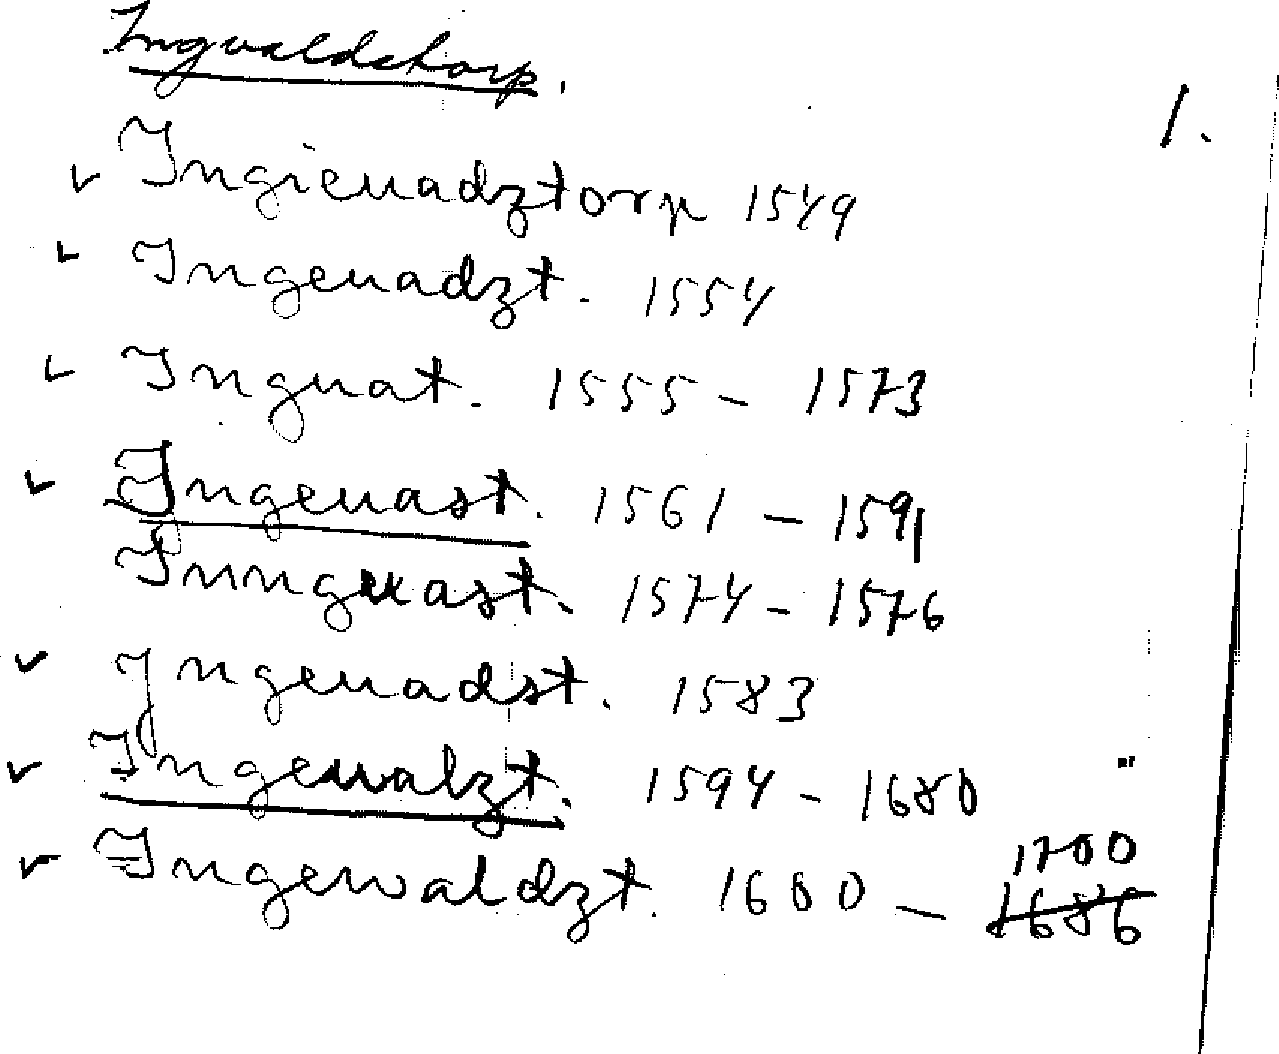 Ingvaldstorp.
1.
Ingieuadztorp 1549
Ingeuadzt. 1554
Inguat. 1555 - 1573
Ingeuast. 1561 - 1591
Innguast. 1574 - 1576
Ingeuadst. 1583
Ingeualzt. 1594 - 1680
1700
Ingewaldzt. 1600 - 1686